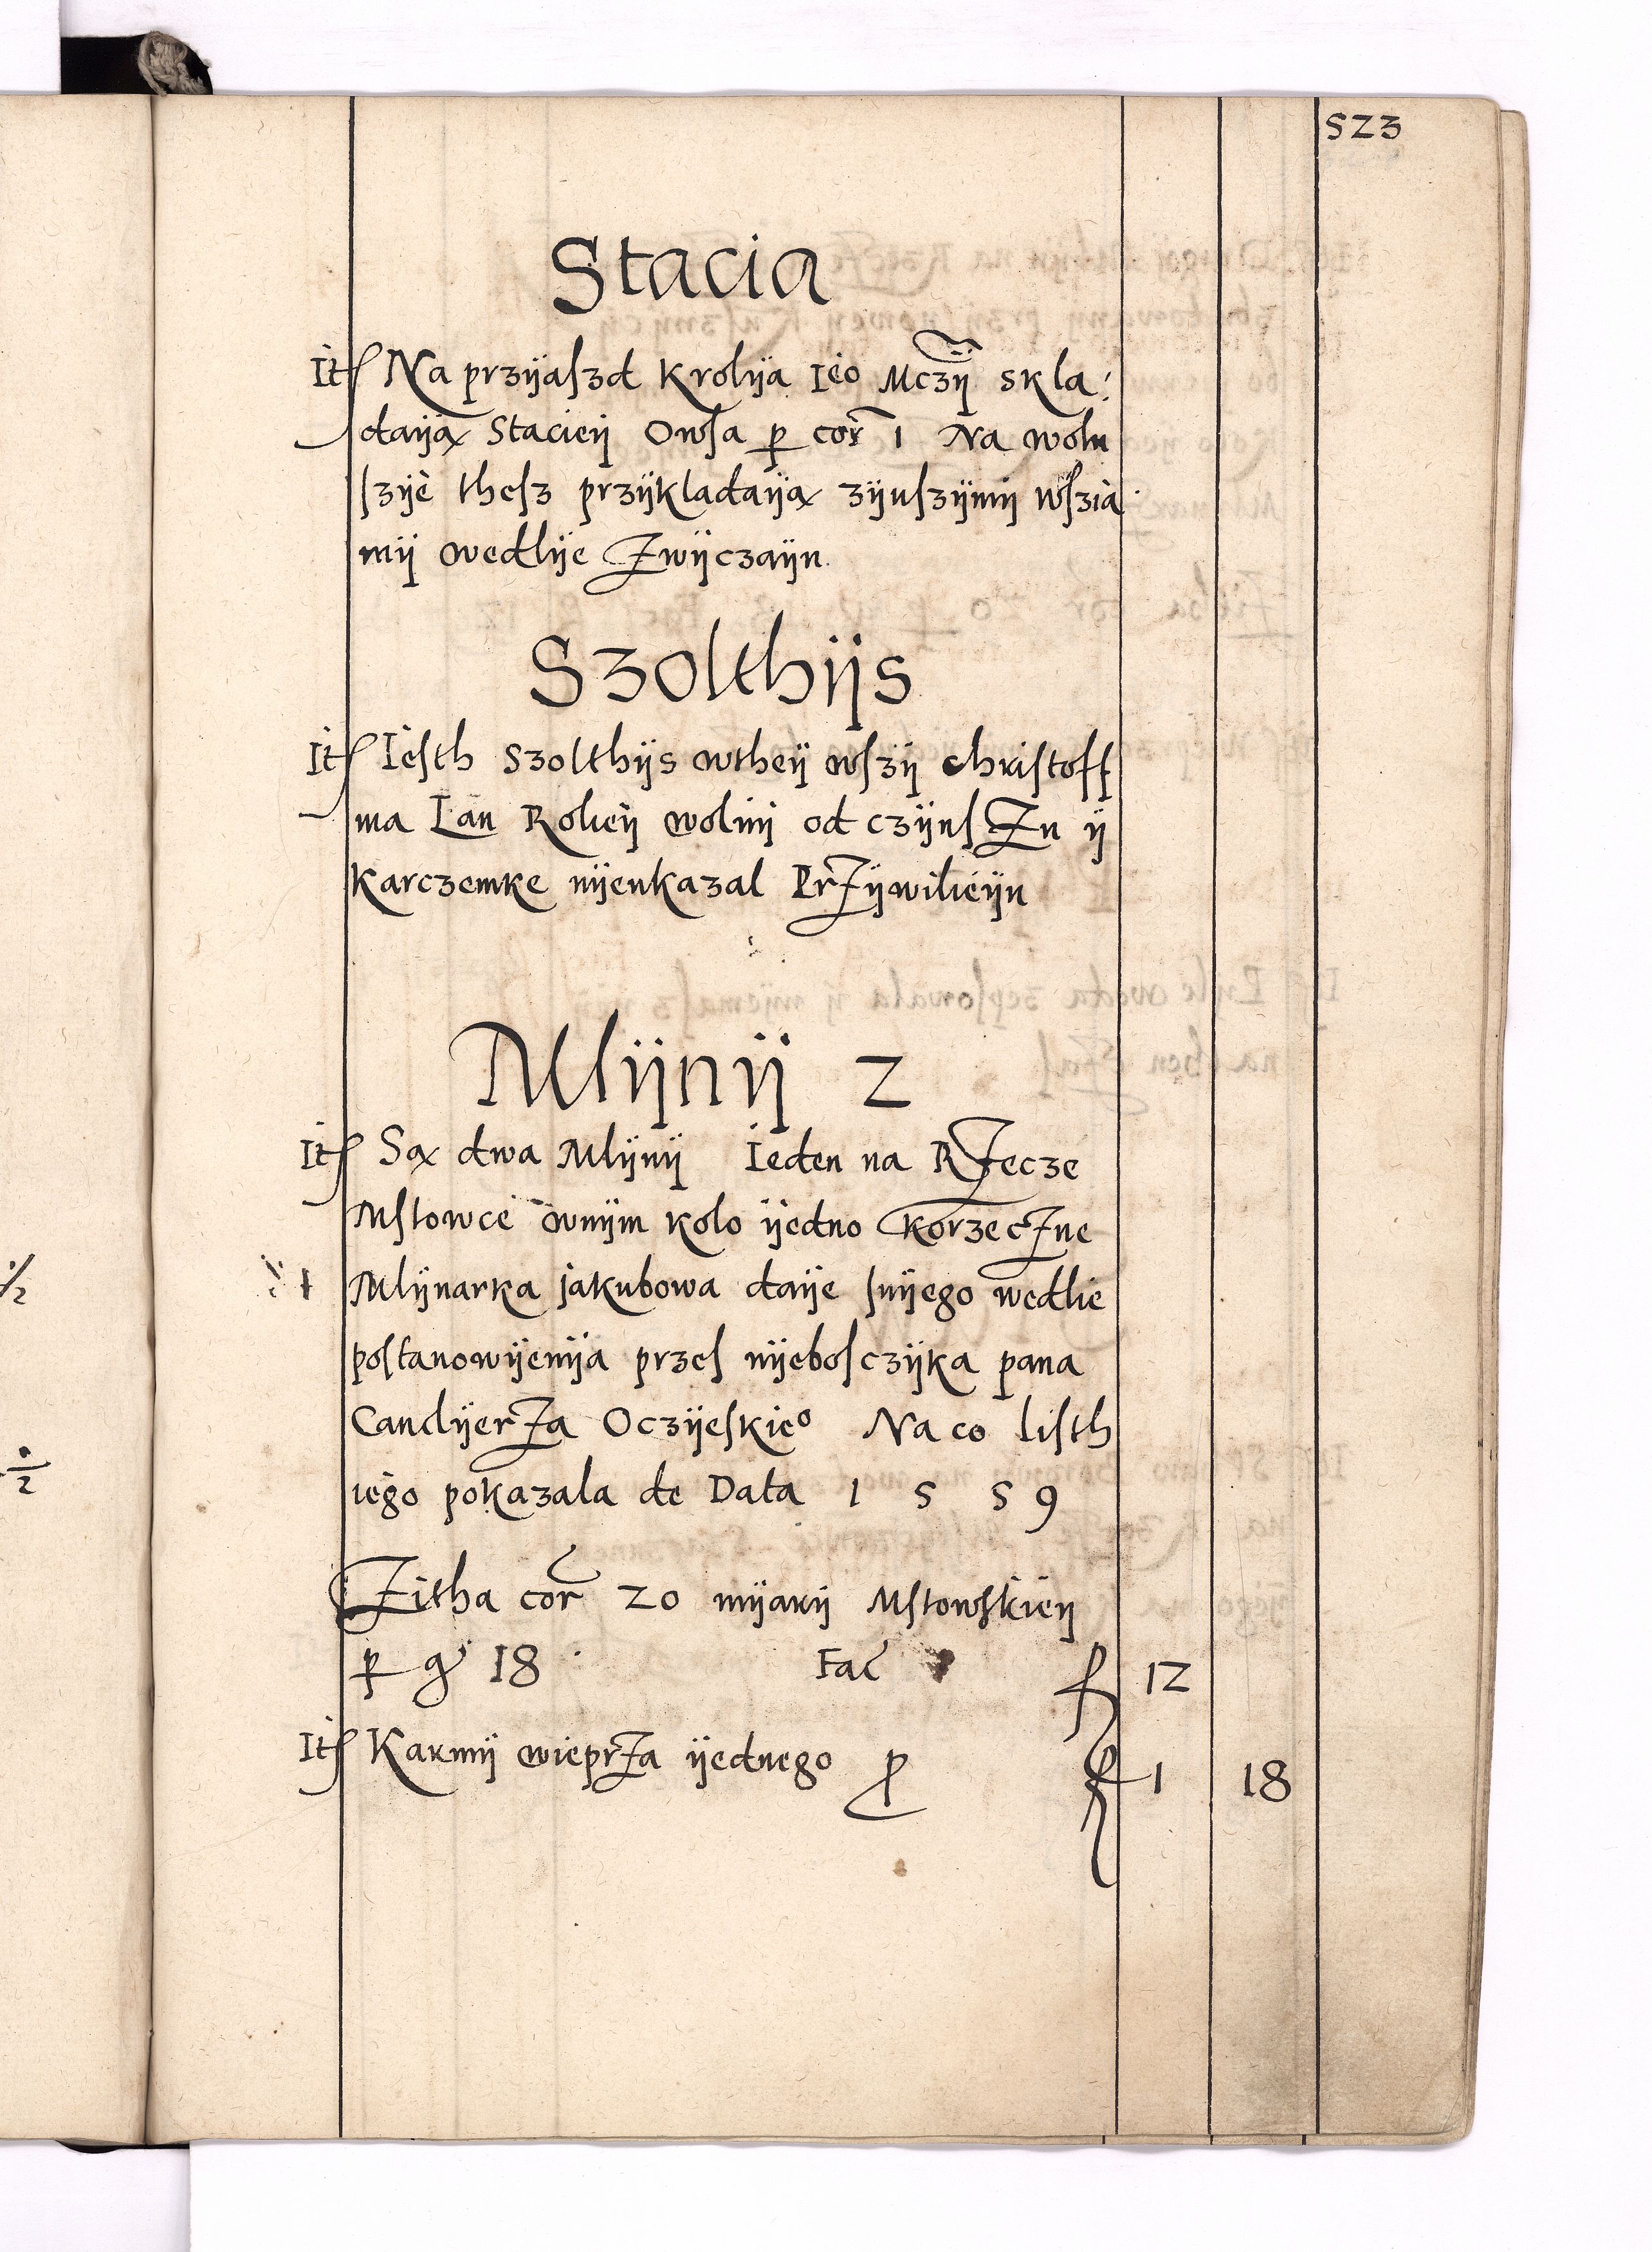 523
Stacia
It Na przÿaſzd Krolÿa Ieo Mczÿ skla:
daÿą Stacieÿ Owſa p cor 1 Na wolu
ſzÿe theſz przÿkladaÿą zÿnſzÿmÿ wſzia
mÿ wedlÿe Zwÿczaÿu
Szolthÿs
It Ieſth Szolthÿs wtheÿ wſzÿ chriſtoff
ma Lan Rolieÿ wolnÿ od czÿnſZu ÿ
karczemke nÿeukazal PrZÿwilieÿu
Mlÿnÿ 2
It Są dwa Mlÿnÿ Ieden na RZecze
Mſtowce wnÿm kolo ÿedno korzecZne
1 Mlÿnarka jakubowa daÿe ſnÿego wedlie
poſtanowÿenÿa przeſ nÿeboſczÿka pana
CanclÿerZa Oczÿeſkieo Na co liſth
iego pokazala de Data 1 5 5 9
Zitha cor 20 mÿarÿ Mſtowſkieÿ
p gr 18 Fac f 12
It Karmÿ wieprZa ÿednego p f 1 18